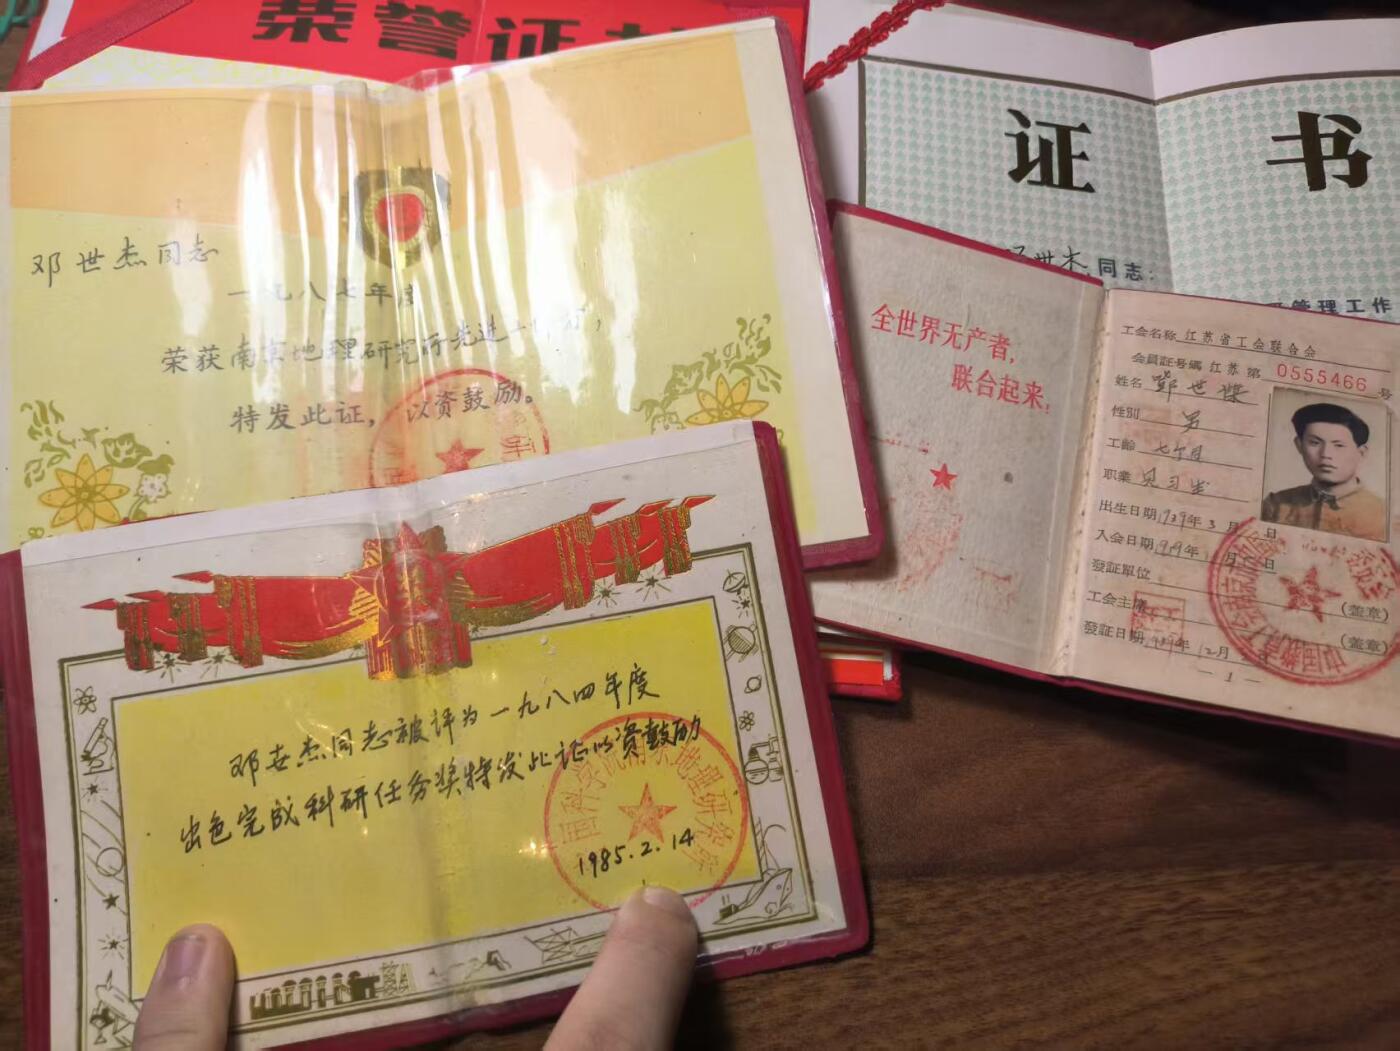 荣誉证
邓世杰同志
一九八七年度
荣获南京地理研究所先进工作者，
特发此证，以资鼓励。
证书
同志：
管理工作
全世界无产者，
联合起来！
工会名称 江苏省工会联合会
会員証号碼 江苏 第 0555466 号
姓名 鄧世傑
性別 男
工齡 七个月
职業 見习生
出生日期 1939年3月 日
入会日期 1959年 月 日
發証單位
(盖章)
工会主席
(盖章)
發証日期 1959年12月 日
— 1 —
邓世杰同志被评为一九八四年度
出色完成科研任务奖特发此证以资鼓励
中国科学院南京地理研究所
1985.2.14